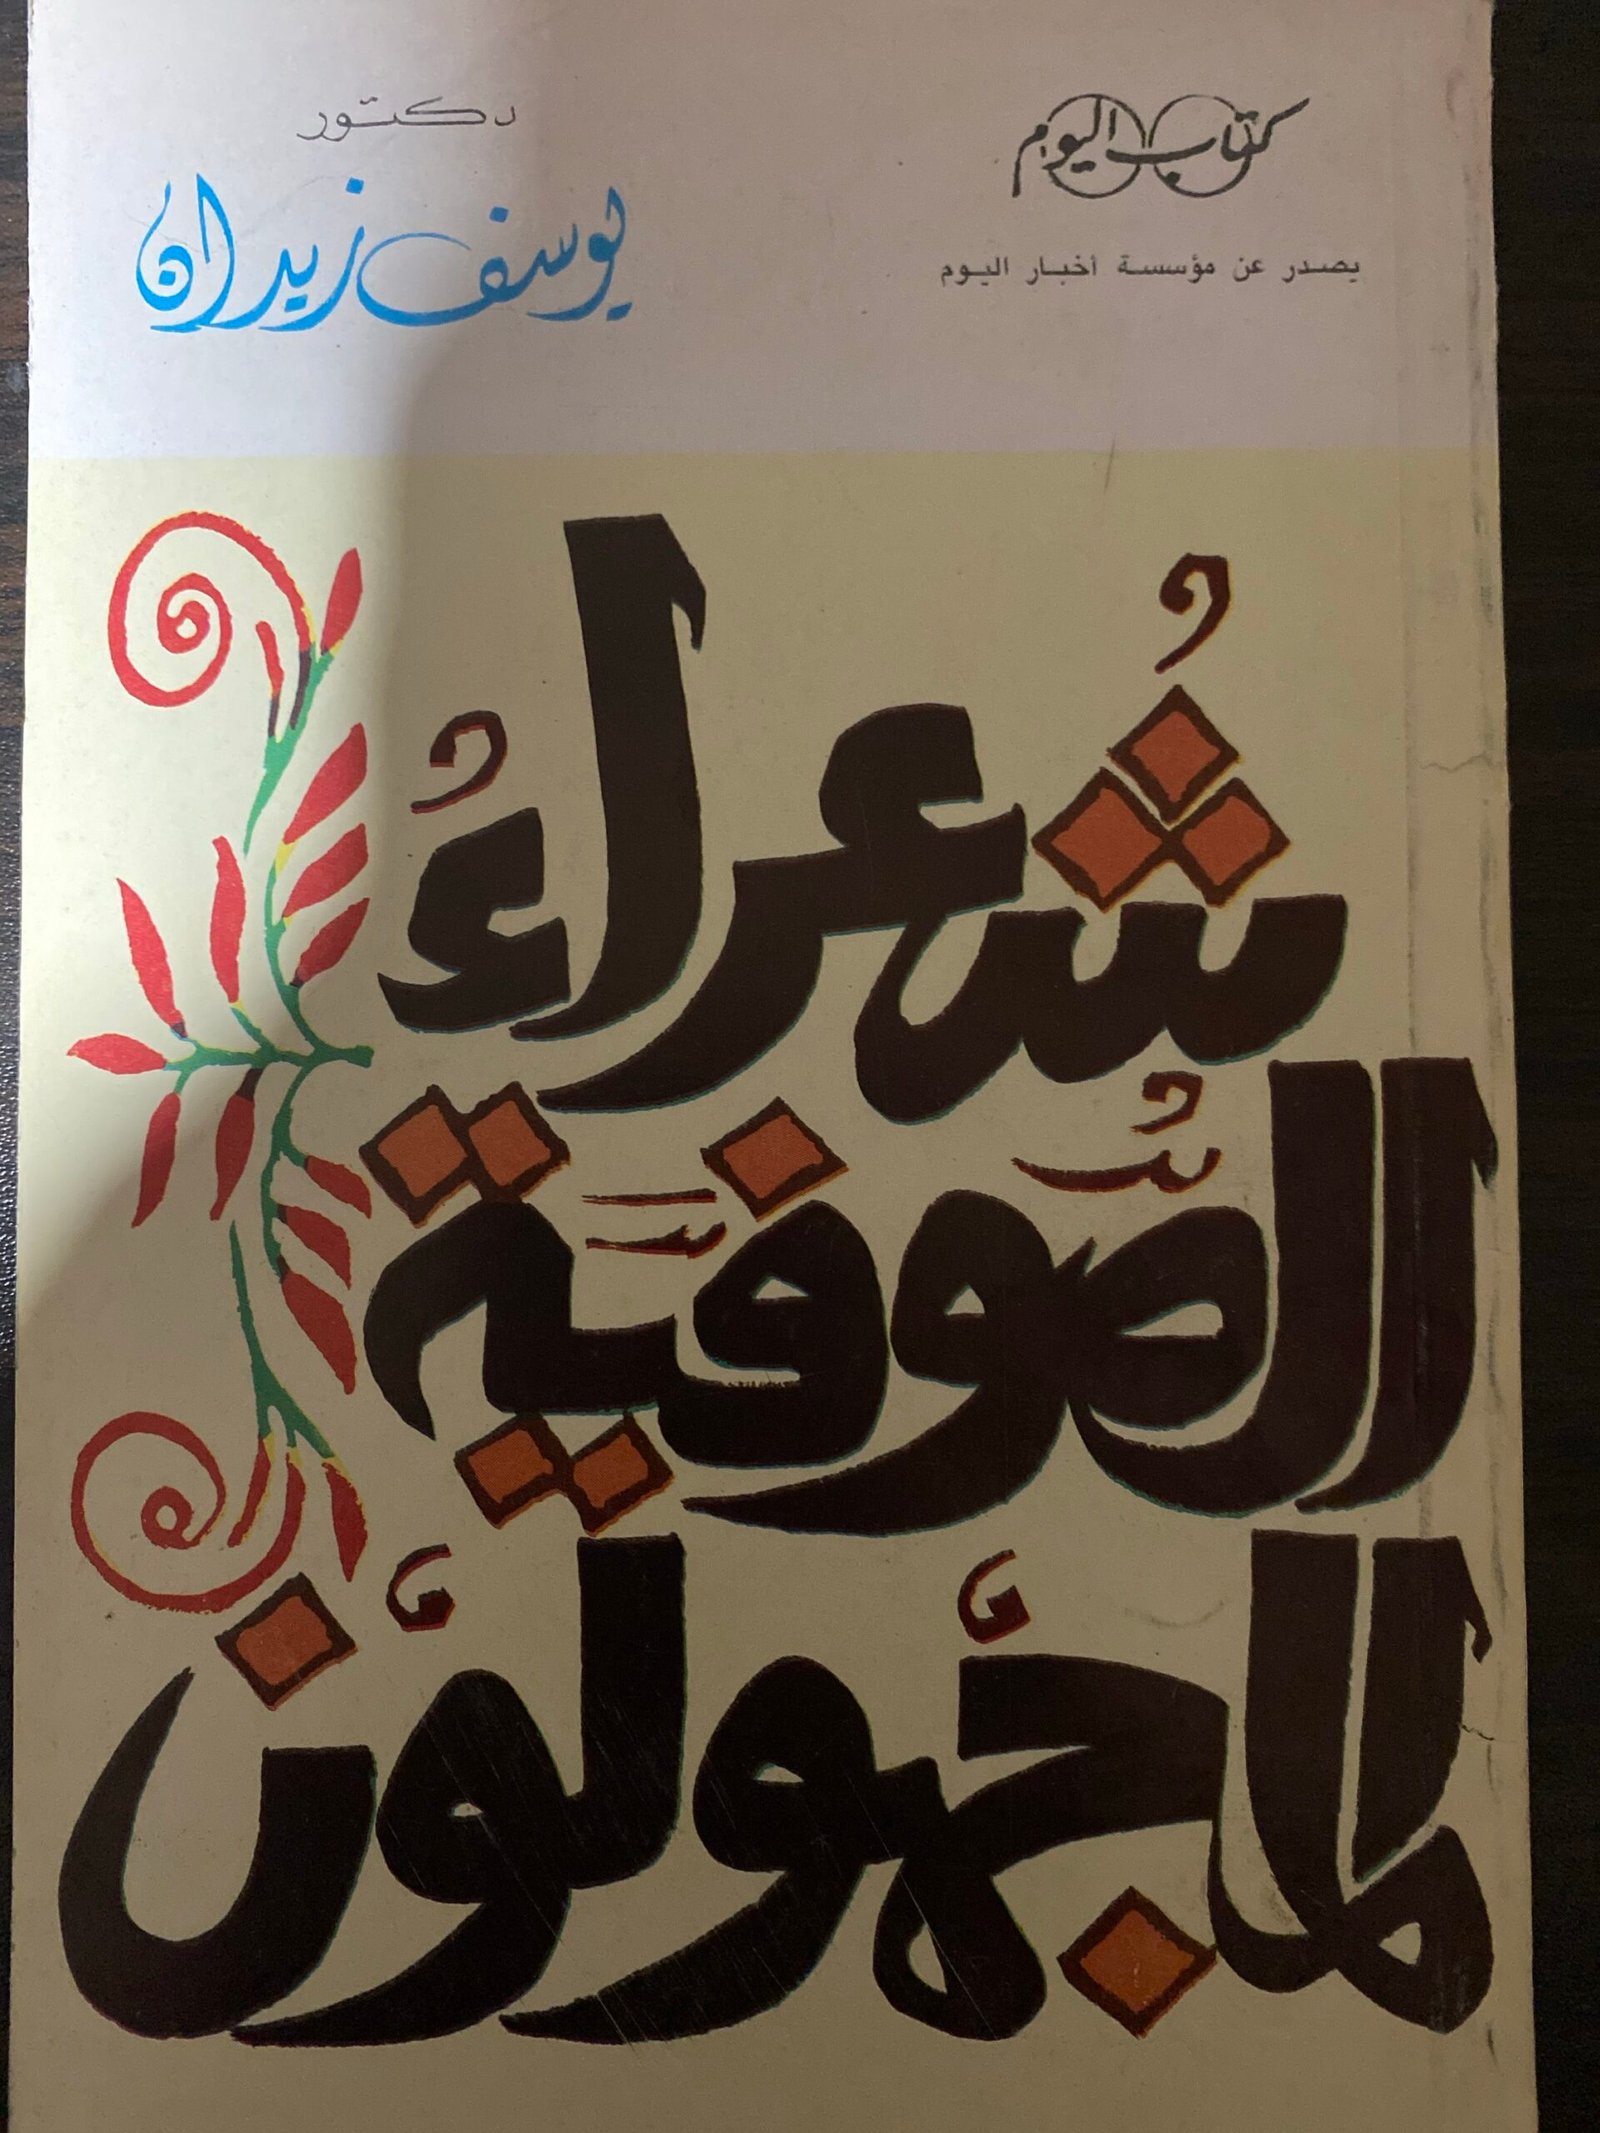 كتاب اليوم
يصدر عن مؤسسة أخبار اليوم
دكتور
يوسف زيدان
شُعراءُ
الصُّوفيَّة
المجهولون